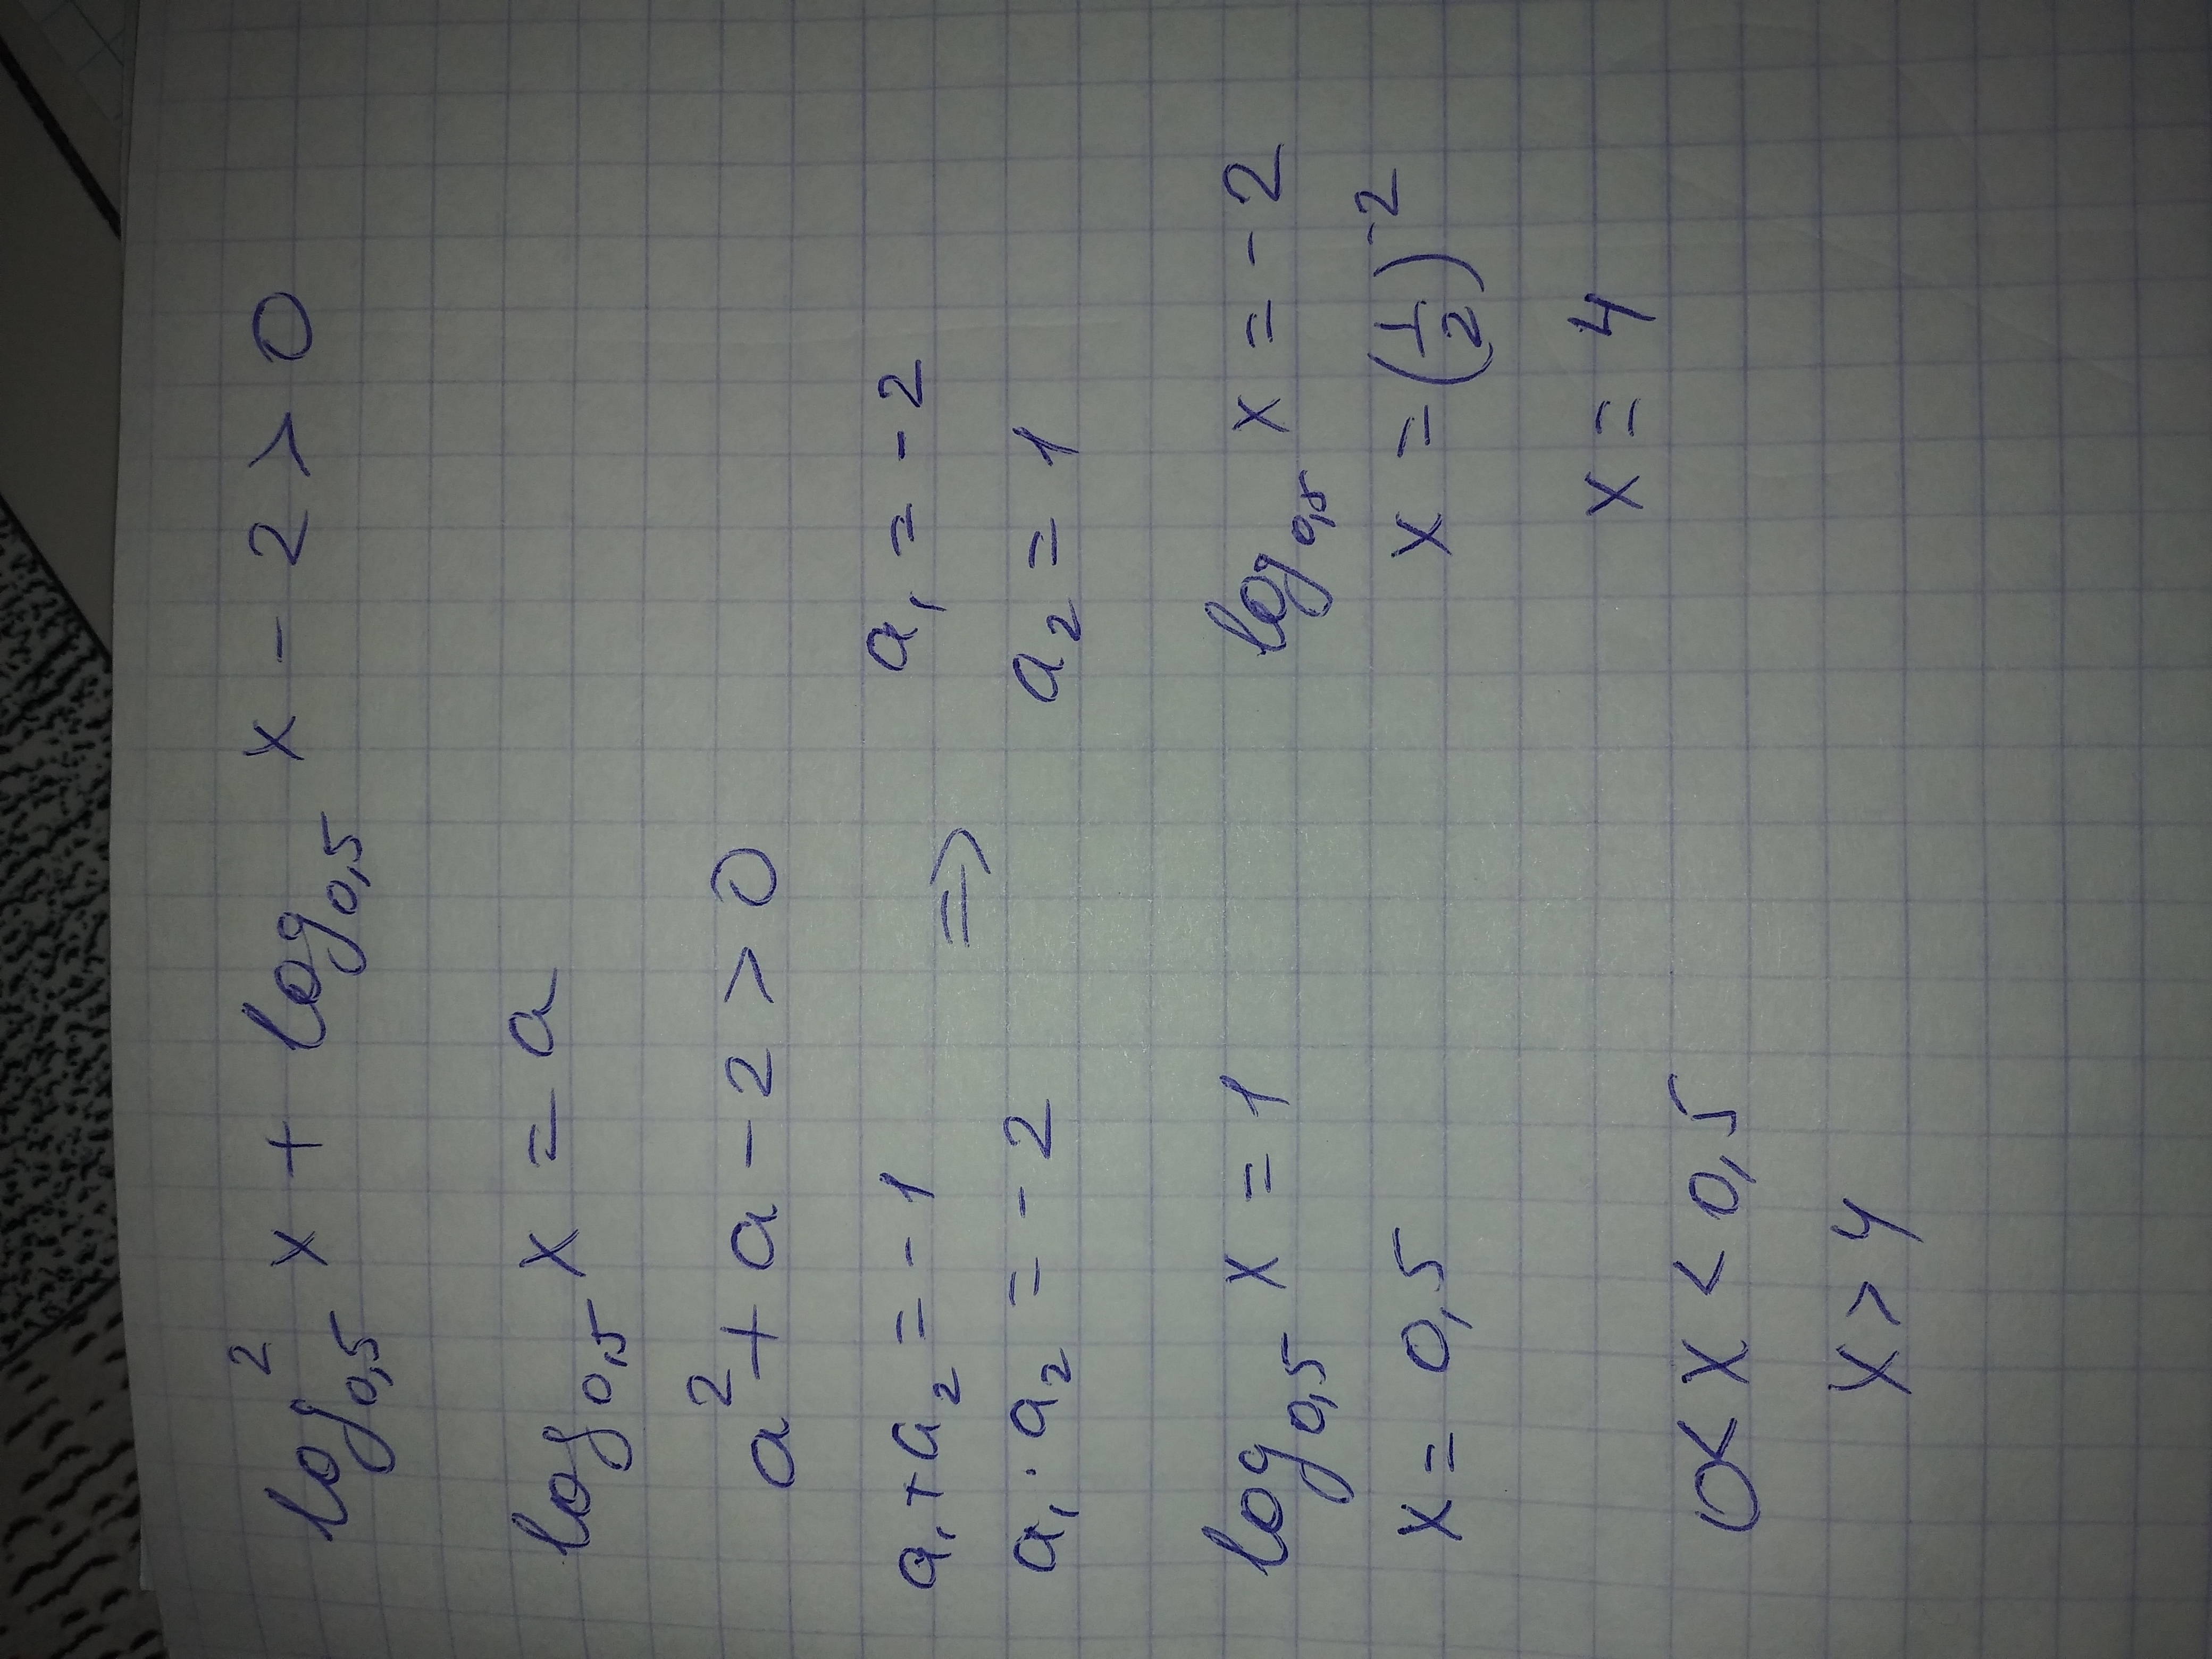 log²₀,₅ x + log₀,₅ x - 2 > 0
log₀,₅ x = a
a² + a - 2 > 0
a₁ + a₂ = -1 a₁ = -2
a₁ · a₂ = -2 ⇒ a₂ = 1
log₀,₅ x = 1 log₀,₅ x = -2
x = 0,5 x = (1/2)⁻²
x = 4
0 < x < 0,5
x > 4